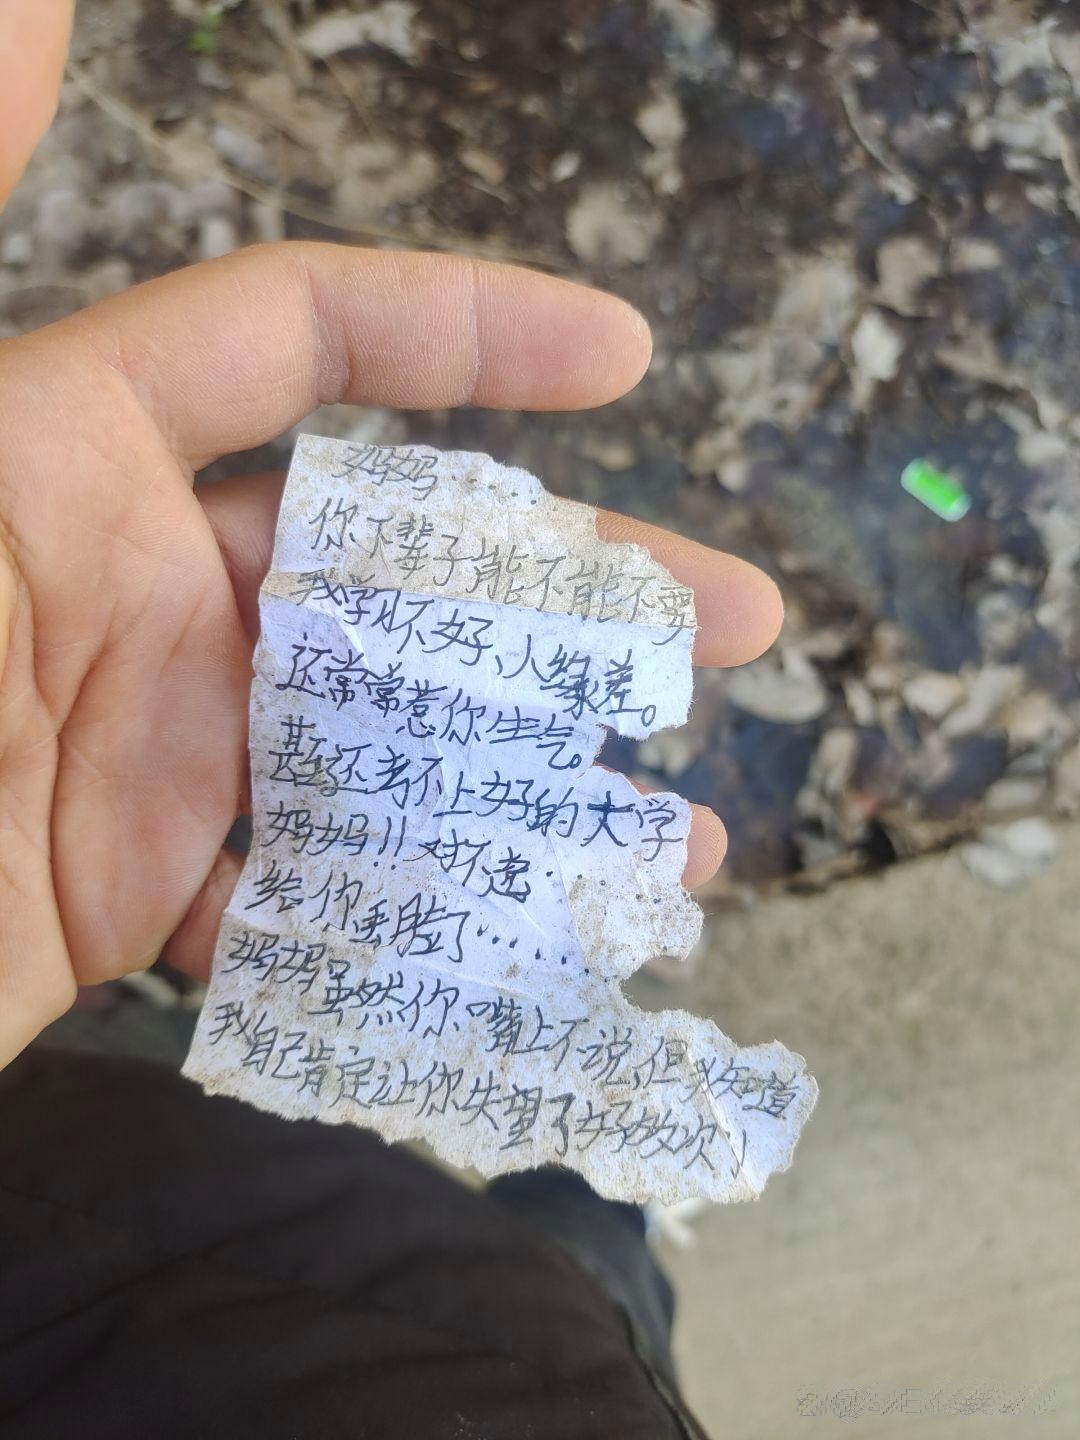 妈妈......
你下辈子能不能不要
我学习不好、人缘差。
还常常惹你生气。
甚至还考不上好的大学
妈妈!!对不起...
给你丢脸了......
妈妈虽然你嘴上不说,但我知道
我自己肯定让你失望了好多次